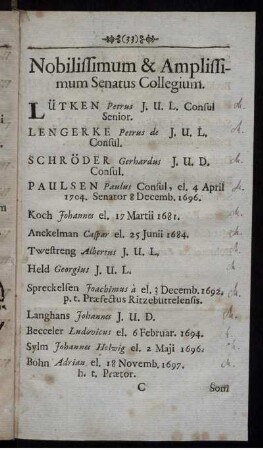 (33)
Nobilissimum & Amplissi-
mum Senatus Collegium.
LÜTKEN Petrus J. U. L. Consul
Senior.
LENGERKE Petrus de J. U. L.
Consul.
SCHRÖDER Gerhardus J. U. D.
Consul.
PAULSEN Paulus Consul, el. 4 April
1704. Senator 8 Decemb. 1696.
Koch Johannes el. 17 Martii 1681.
Anckelman Caspar el. 25 Junii 1684.
Twestreng Albertus J. U. L.
Held Georgius J. U. L.
Spreckelsen Joachimus à el. 3 Decemb. 1692.
p. t. Præfectus Ritzebuttelensis.
Langhans Johannes J. U. D.
Becceler Ludovicus el. 6 Februar. 1694.
Sylm Johannes Helwig el. 2 Maji 1696.
Bohn Adrian. el. 18 Novemb. 1697.
h. t. Prætor.
C Som